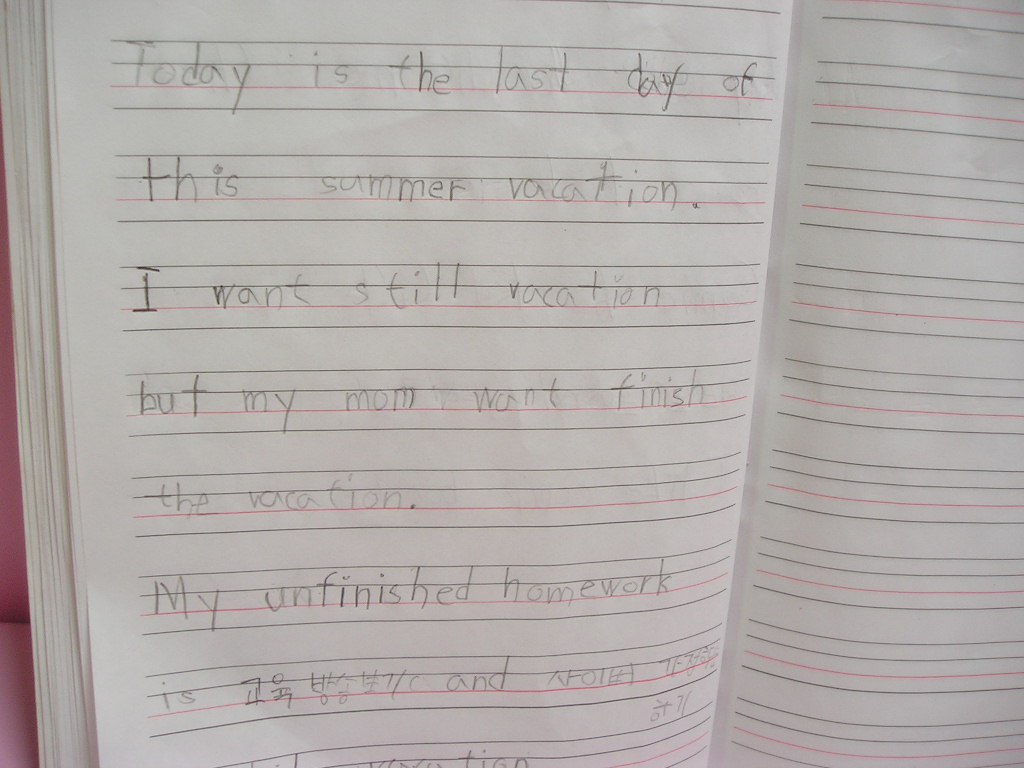 Today is the last day of
this summer vacation.
I want still vacation
but my mom want finish
the vacation.
My unfinished homework
is 교육 방송보기 and 사이버 가정학습
하기
vacation